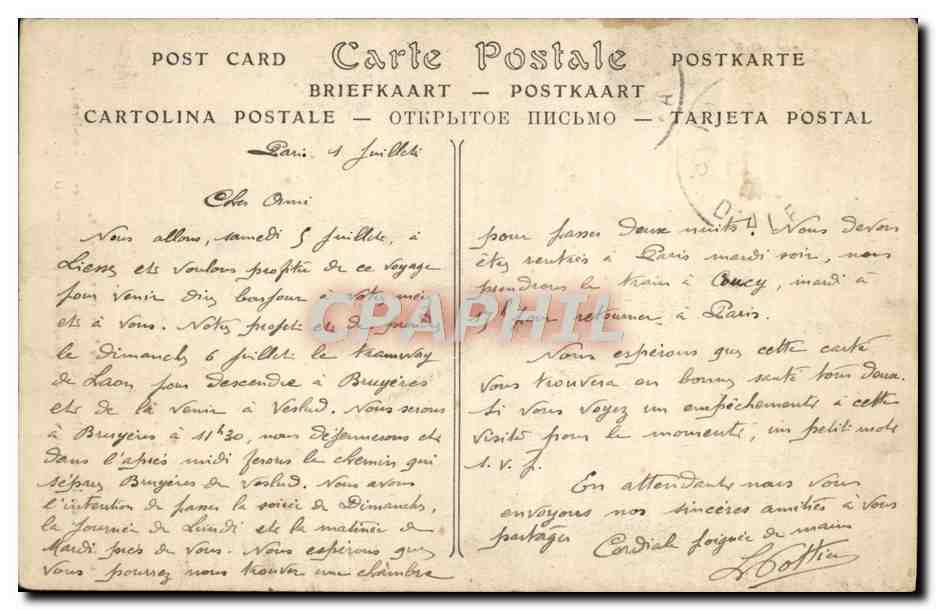 POST CARD Carte Postale POSTKARTE
BRIEFKAART — POSTKAART
CARTOLINA POSTALE — ОТКРЫТОЕ ПИСЬМО — TARJETA POSTAL
Paris 1 Juillet
Cher Ami
Nous allons, samedi 5 Juillet, à
Liesse et voulons profiter de ce voyage
pour venir dire bonjour à Votre mère
et à vous. Notre projet est de prendre
le dimanche 6 Juillet le tramway
de Laon pour descendre à Bruyères
et de là venir à Veslud. Nous serons
à Bruyères à 11h30, nous déjeunerons et
dans l'après midi ferons le chemin qui
sépare Bruyères de Veslud. Nous avons
l'intention de passer la soirée de Dimanche,
la Journée de Lundi et la matinée de
Mardi près de Vous. Nous espérons que
Vous pourrez nous trouver une chambre
pour passer deux nuits. Nous devons
être rentrés à Paris mardi soir, nous
prendrons le train à Coucy, mardi à
pour retourner à Paris.
Nous espérons que cette carte
vous trouvera en bonne santé tous deux.
Si vous voyez un empêchement à cette
visite pour le moment, un petit mot
s. v. p.
En attendant nous vous
envoyons nos sincères amitiés à vous
partager
Cordiale poignée de mains
CPAPHIL